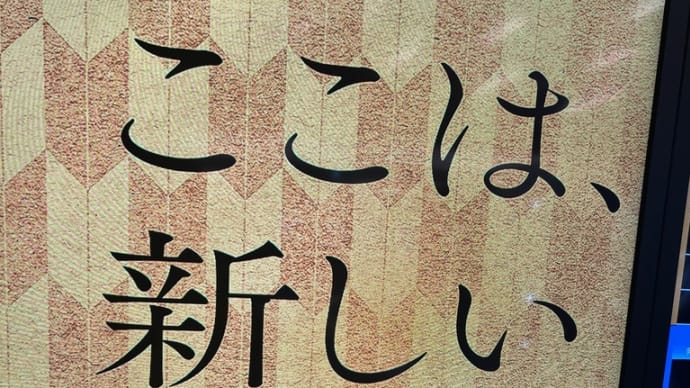 ここは、
新しい